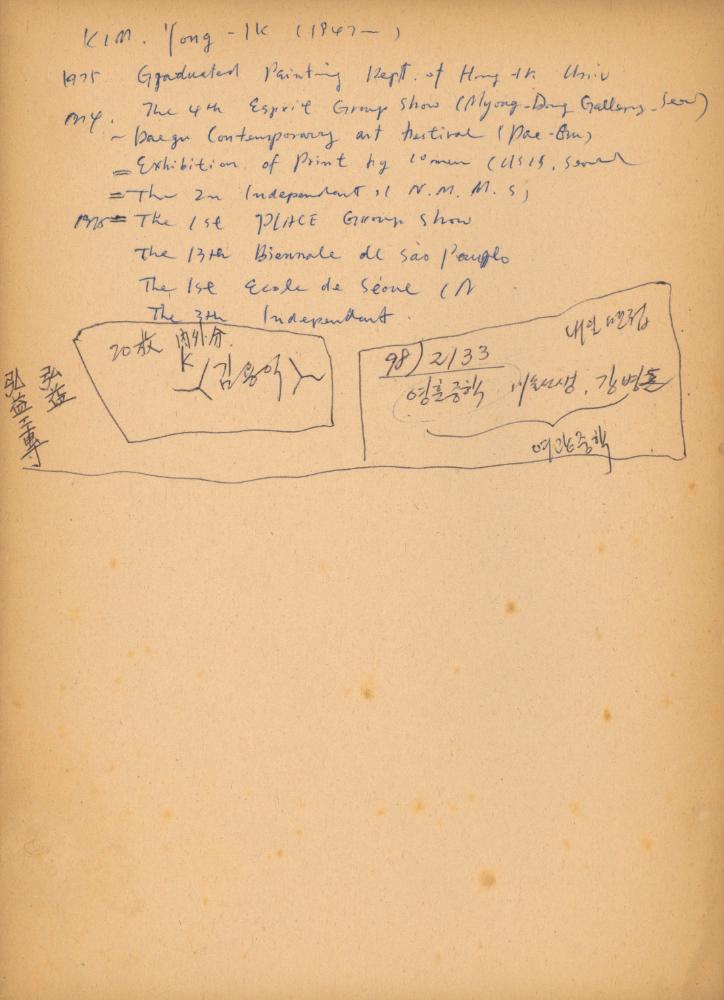 KIM. Yong-IK (1947~)
1975 Graduated Painting Dept. of Hong-ik Univ
1974. The 4th Esprit Group Show (Myong-Dong Gallery, Seoul)
~ Daegu Contemporary art Festival (Dae-Gu)
= Exhibition of Print by women (USIS, Seoul
= The 2n Independant, (N.M.M.S)
1975 = The 1st PLACE Group Show
The 13th Biennale de São Paulo
The 1st Ecole de Séoul (N
The 3th Independant.
20枚 內外分.
K
김용익
내일 면접
98) 2133
영훈중학 미술선생. 김병
여관중학
弘益
弘益